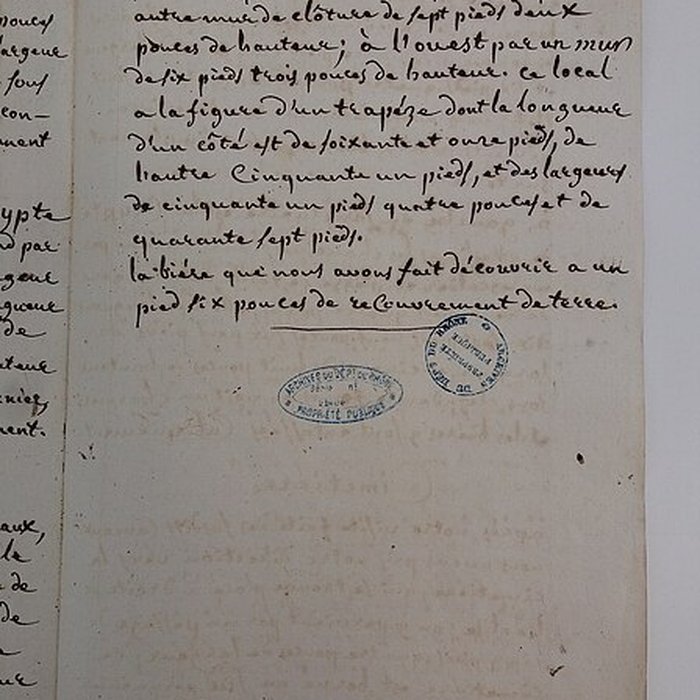 autre mur de clôture de sept pieds deux
pouces de hauteur; à l'ouest par un mur
de six pieds trois pouces de hauteur. ce local
a la figure d'un trapéze dont la longueur
d'un côté est de soixante et onze pieds, de
l'autre Cinquante un pieds, et des largeurs
de cinquante un pieds quatre pouces et de
quarante sept pieds.
la biére que nous avons fait découvrir a un
pied six pouces de recouvrement de terre.
ARCHIVES DU DÉPT DU RHÔNE
PROPRIÉTÉ PUBLIQUE
ARCHIVES DU DÉPT DU RHÔNE
PROPRIÉTÉ
PUBLIQUE
pouces
largeur
sous
con-
ment
ypte
nd par
geur
ngueur
de
uteur
nier
ment.
aux,
le
de
de